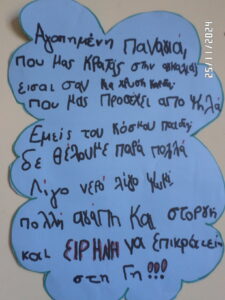 Αγαπημένη Παναγιά,
που μας κρατάς στην αγκαλιά
εισαι σαν μια χρυση
που μας προσέχει απο ψηλά
Εμείς του κόσμου παιδιά
δε θέλουμε παρά πολλά
Λίγο νερό λίγο ψωμί
πολλή αγάπη και στοργή
και ΕΙΡΗΝΗ να επικρατεί
στη Γη!!!
25/11/2024